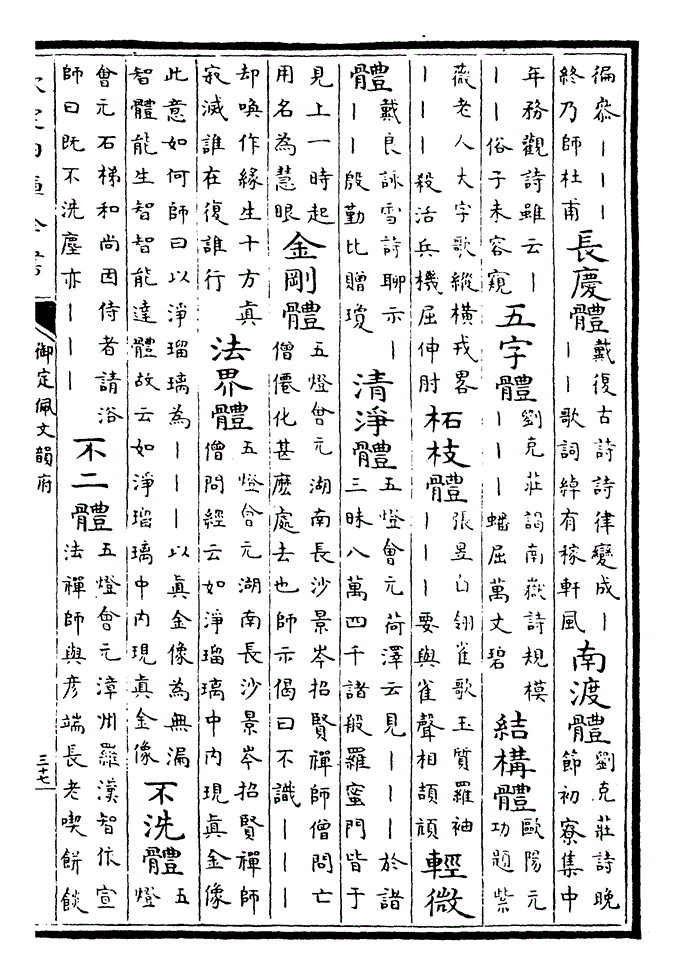 徧叅｜｜｜
終乃師杜甫
長慶體
戴復古詩詩律變成｜
｜｜歌詞綽有稼軒風
南渡體
劉克莊詩晚
節初寮集中
年務觀詩雖云｜
｜｜俗子未容窺
五字體
劉克莊謁南嶽詩規模
｜｜｜蟠屈萬丈碧
結構體
歐陽元
功題紫
薇老人大字歌縱橫戎畧
｜｜｜殺活兵機屈伸肘
柘枝體
張昱白翎雀歌玉質羅袖
｜｜｜要與雀聲相頡頏
輕微
體
戴良詠雪詩聊示｜
｜｜殷勤比贈瓊
清淨體
五燈會元荷澤云見｜｜｜於諸
三昧八萬四千諸般羅蜜門皆于
見上一時起
用名為慧眼
金剛體
五燈會元湖南長沙景岑招賢禪師僧問亡
僧僊化甚麽處去也師示偈曰不識｜｜｜
却喚作緣生十方真
寂滅誰在復誰行
法界體
五燈會元湖南長沙景岑招賢禪師
僧問經云如淨瑠璃中内現真金像
此意如何師曰以淨瑠璃為｜｜｜以真金像為無漏
智體能生智智能達體故云如淨瑠璃中内現真金像
不洗體
五
燈
會元石梯和尚因侍者請浴
師曰既不洗塵亦｜｜｜
不二體
五燈會元漳州羅漢智依宣
法禪師與彦端長老喫餅餤
御定佩文韻府
三七